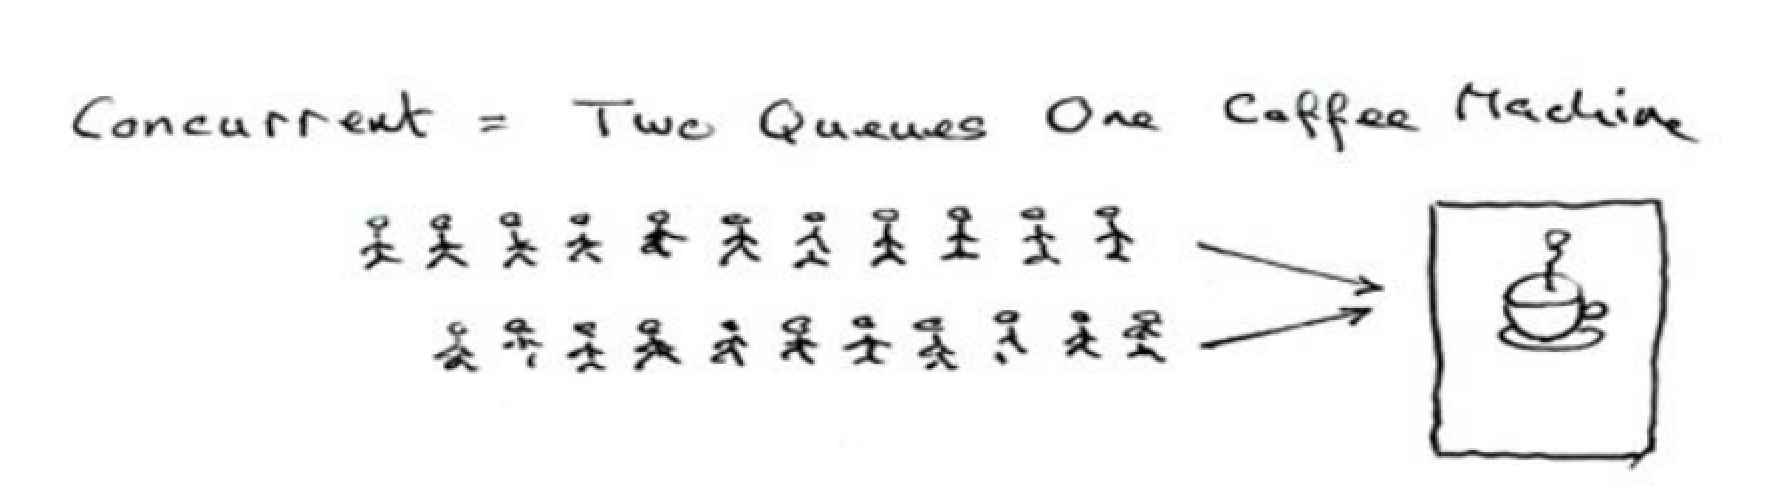 Concurrent = Two Queues One Coffee Machine